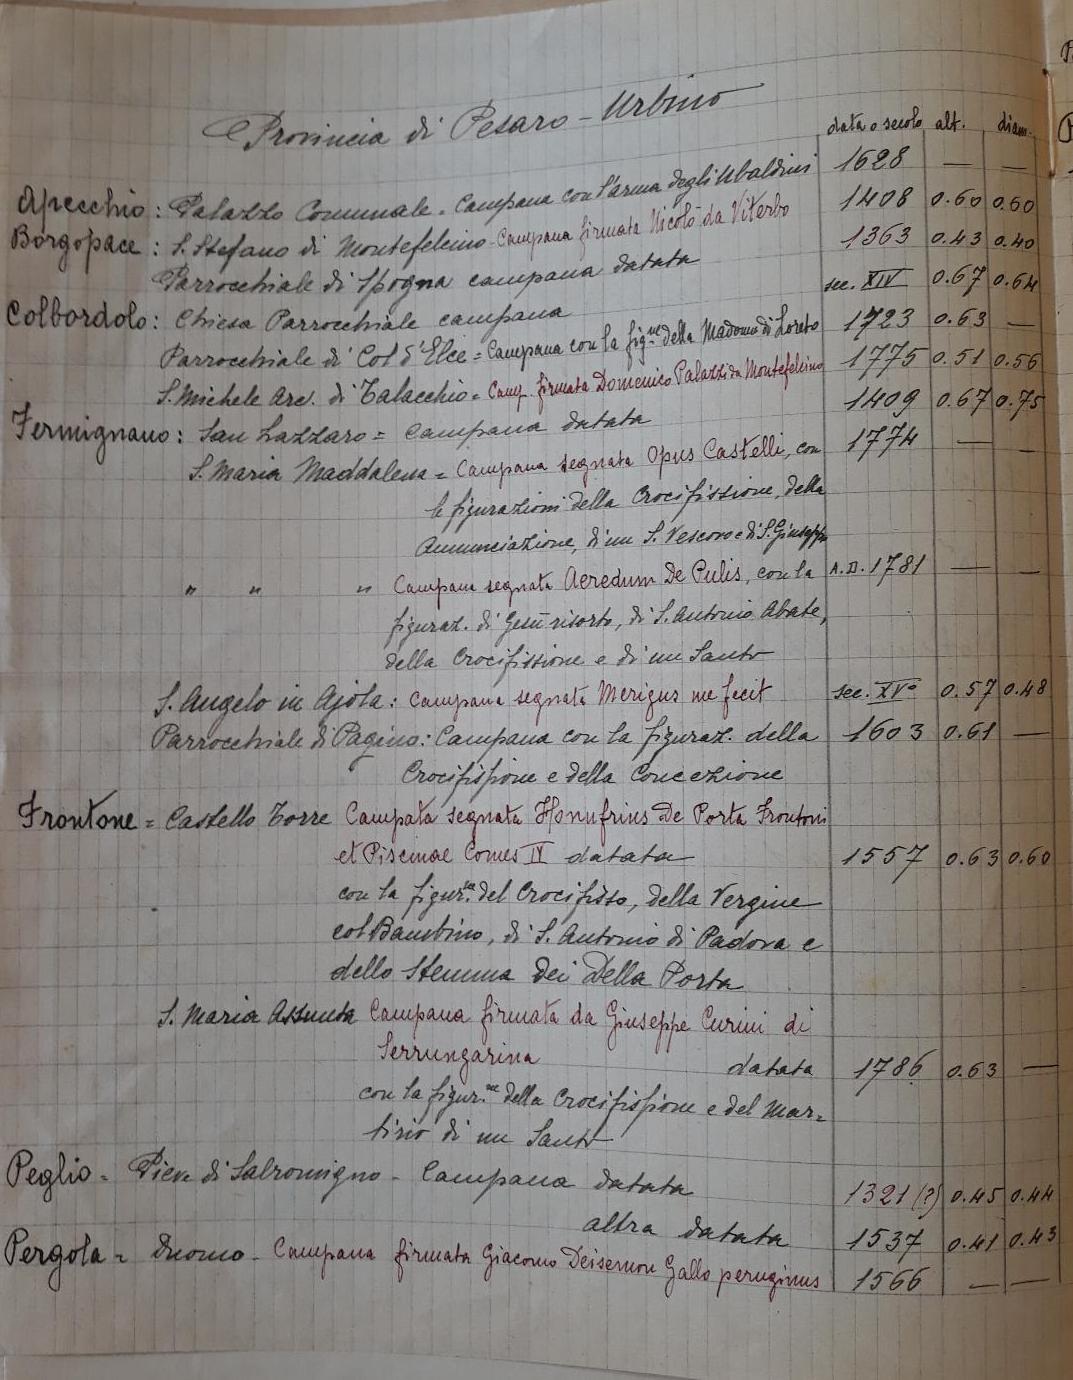 Provincia di Pesaro - Urbino
data o secolo alt. diam.
Apecchio: Palazzo Comunale - Campana con l'arma degli Ubaldini 1628 — —
Borgopace: S. Stefano di Montefelcino - Campana firmata Nicolò da Viterbo 1408 0.60 0.60
Parrocchiale di Spogna campana datata 1363 0.43 0.40
Colbordolo: Chiesa Parrocchiale campana sec. XIV 0.67 0.64
Parrocchiale di Col d'Elce = Campana con la fig.ne della Madonna di Loreto 1723 0.63 —
S. Michele Arc. di Talacchio = Camp. firmata Domenico Palazzi da Montefelcino 1775 0.51 0.56
Fermignano: San Lazzaro = Campana datata 1409 0.67 0.75
S. Maria Maddalena = Campana segnata Opus Castelli, con 1774 — —
le figurazioni della Crocifissione, della
Annunciazione, di un S. Vescovo e di S. Giuseppe
" " " Campana segnata Aeredum De Pulis, con la A.D. 1781 — —
figuraz. di Gesù risorto, di S. Antonio Abate,
della Crocifissione e di un Santo
S. Angelo in Ajola: Campana segnata Merigus me fecit sec. XVº 0.57 0.48
Parrocchiale di Pagino: Campana con la figuraz. della 1603 0.61 —
Crocifissione e della Concezione
Frontone = Castello Torre Campata segnata Honufrius De Porta Frontoni
et Piscinae Comes IV datata 1557 0.63 0.60
con la figur.ne del Crocifisso, della Vergine
col Bambino, di S. Antonio di Padova e
dello Stemma dei Della Porta
S. Maria Assunta Campana firmata da Giuseppe Curini di
Serrungarina datata 1786 0.63 —
con la figur.ne della Crocifissione e del Mar=
tirio di un Santo
Peglio = Pieve di Salromigno - Campana datata 1321 (?) 0.45 0.44
altra datata 1537 0.41 0.43
Pergola = Duomo - Campana firmata Giacomo Deisemon Gallo peruginus 1566 — —